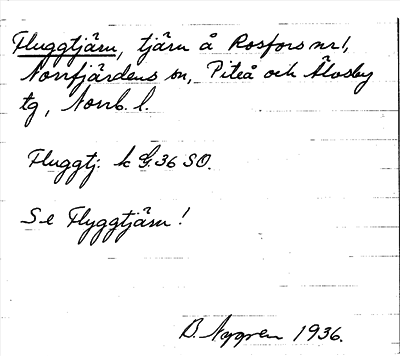 Fluggtjärn, tjärn å Rosfors nr 1,
Norrfjärdens sn, Piteå och Älvsby
tg, Norrb. l.
Fluggtj. k G. 36 SO.
Se Flyggtjärn!
B. Nygren 1936.